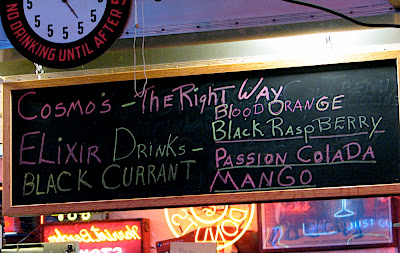 NO DRINKING UNTIL AFTER 5
5 5 5 5
COSMO'S - THE RIGHT WAY
BLOOD ORANGE
BLACK RASPBERRY
ELIXIR DRINKS -
PASSION COLADA
BLACK CURRANT
MANGO
Harriet Brewing
JUST